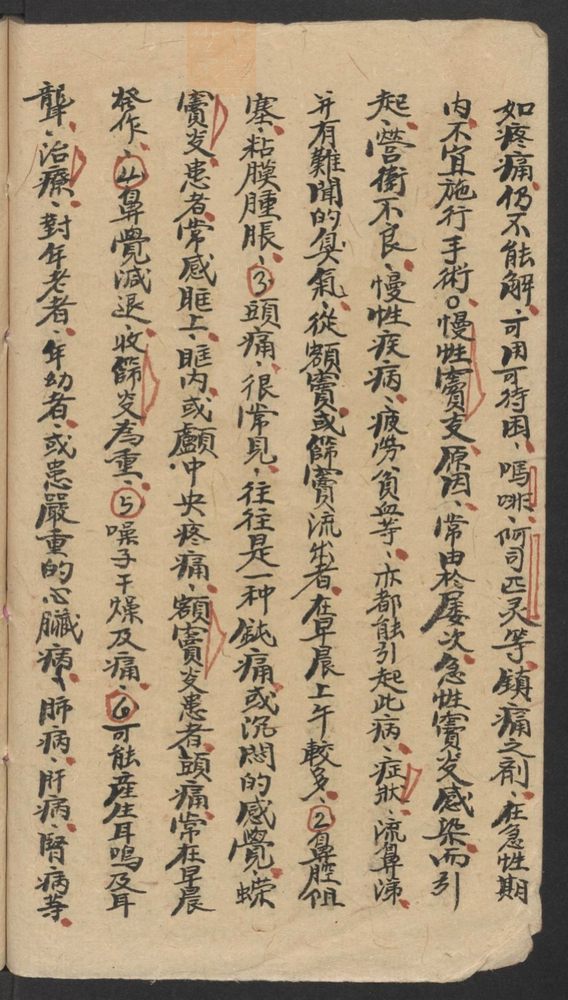 如疼痛仍不能解、可用可待因、嗎啡、阿司匹灵等鎮痛之剤、在急性期
内不宜施行手術。慢性竇支原因、常由於屡次急性竇炎感染而引
起、營衛不良、慢性疾病、疲劳貧血等、亦都能引起此病、症狀、流鼻涕、
并有難聞的臭氣、從額竇或篩竇流出者、在早晨上午較多、②鼻腔阻
塞、粘膜腫脹、③頭痛、很常見、往往是一种鈍痛或沉悶的感覺、蝶
竇炎患者常感眶上、眶内或顱中央疼痛、額竇炎患者頭痛常在早晨
發作、④鼻覺減退、收篩炎為重、⑤噪子干燥及痛、⑥可能産生耳鳴及耳
聾、治療、對年老者、年幼者、或患嚴重的心臓病、肺病、肝病、腎病等、